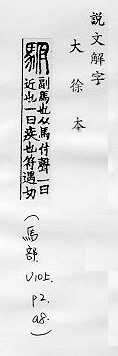 說文解字
大徐本
駙
副馬也从馬付聲一曰
近也一曰疾也符遇切
(馬部
V10上
P2
a8.)